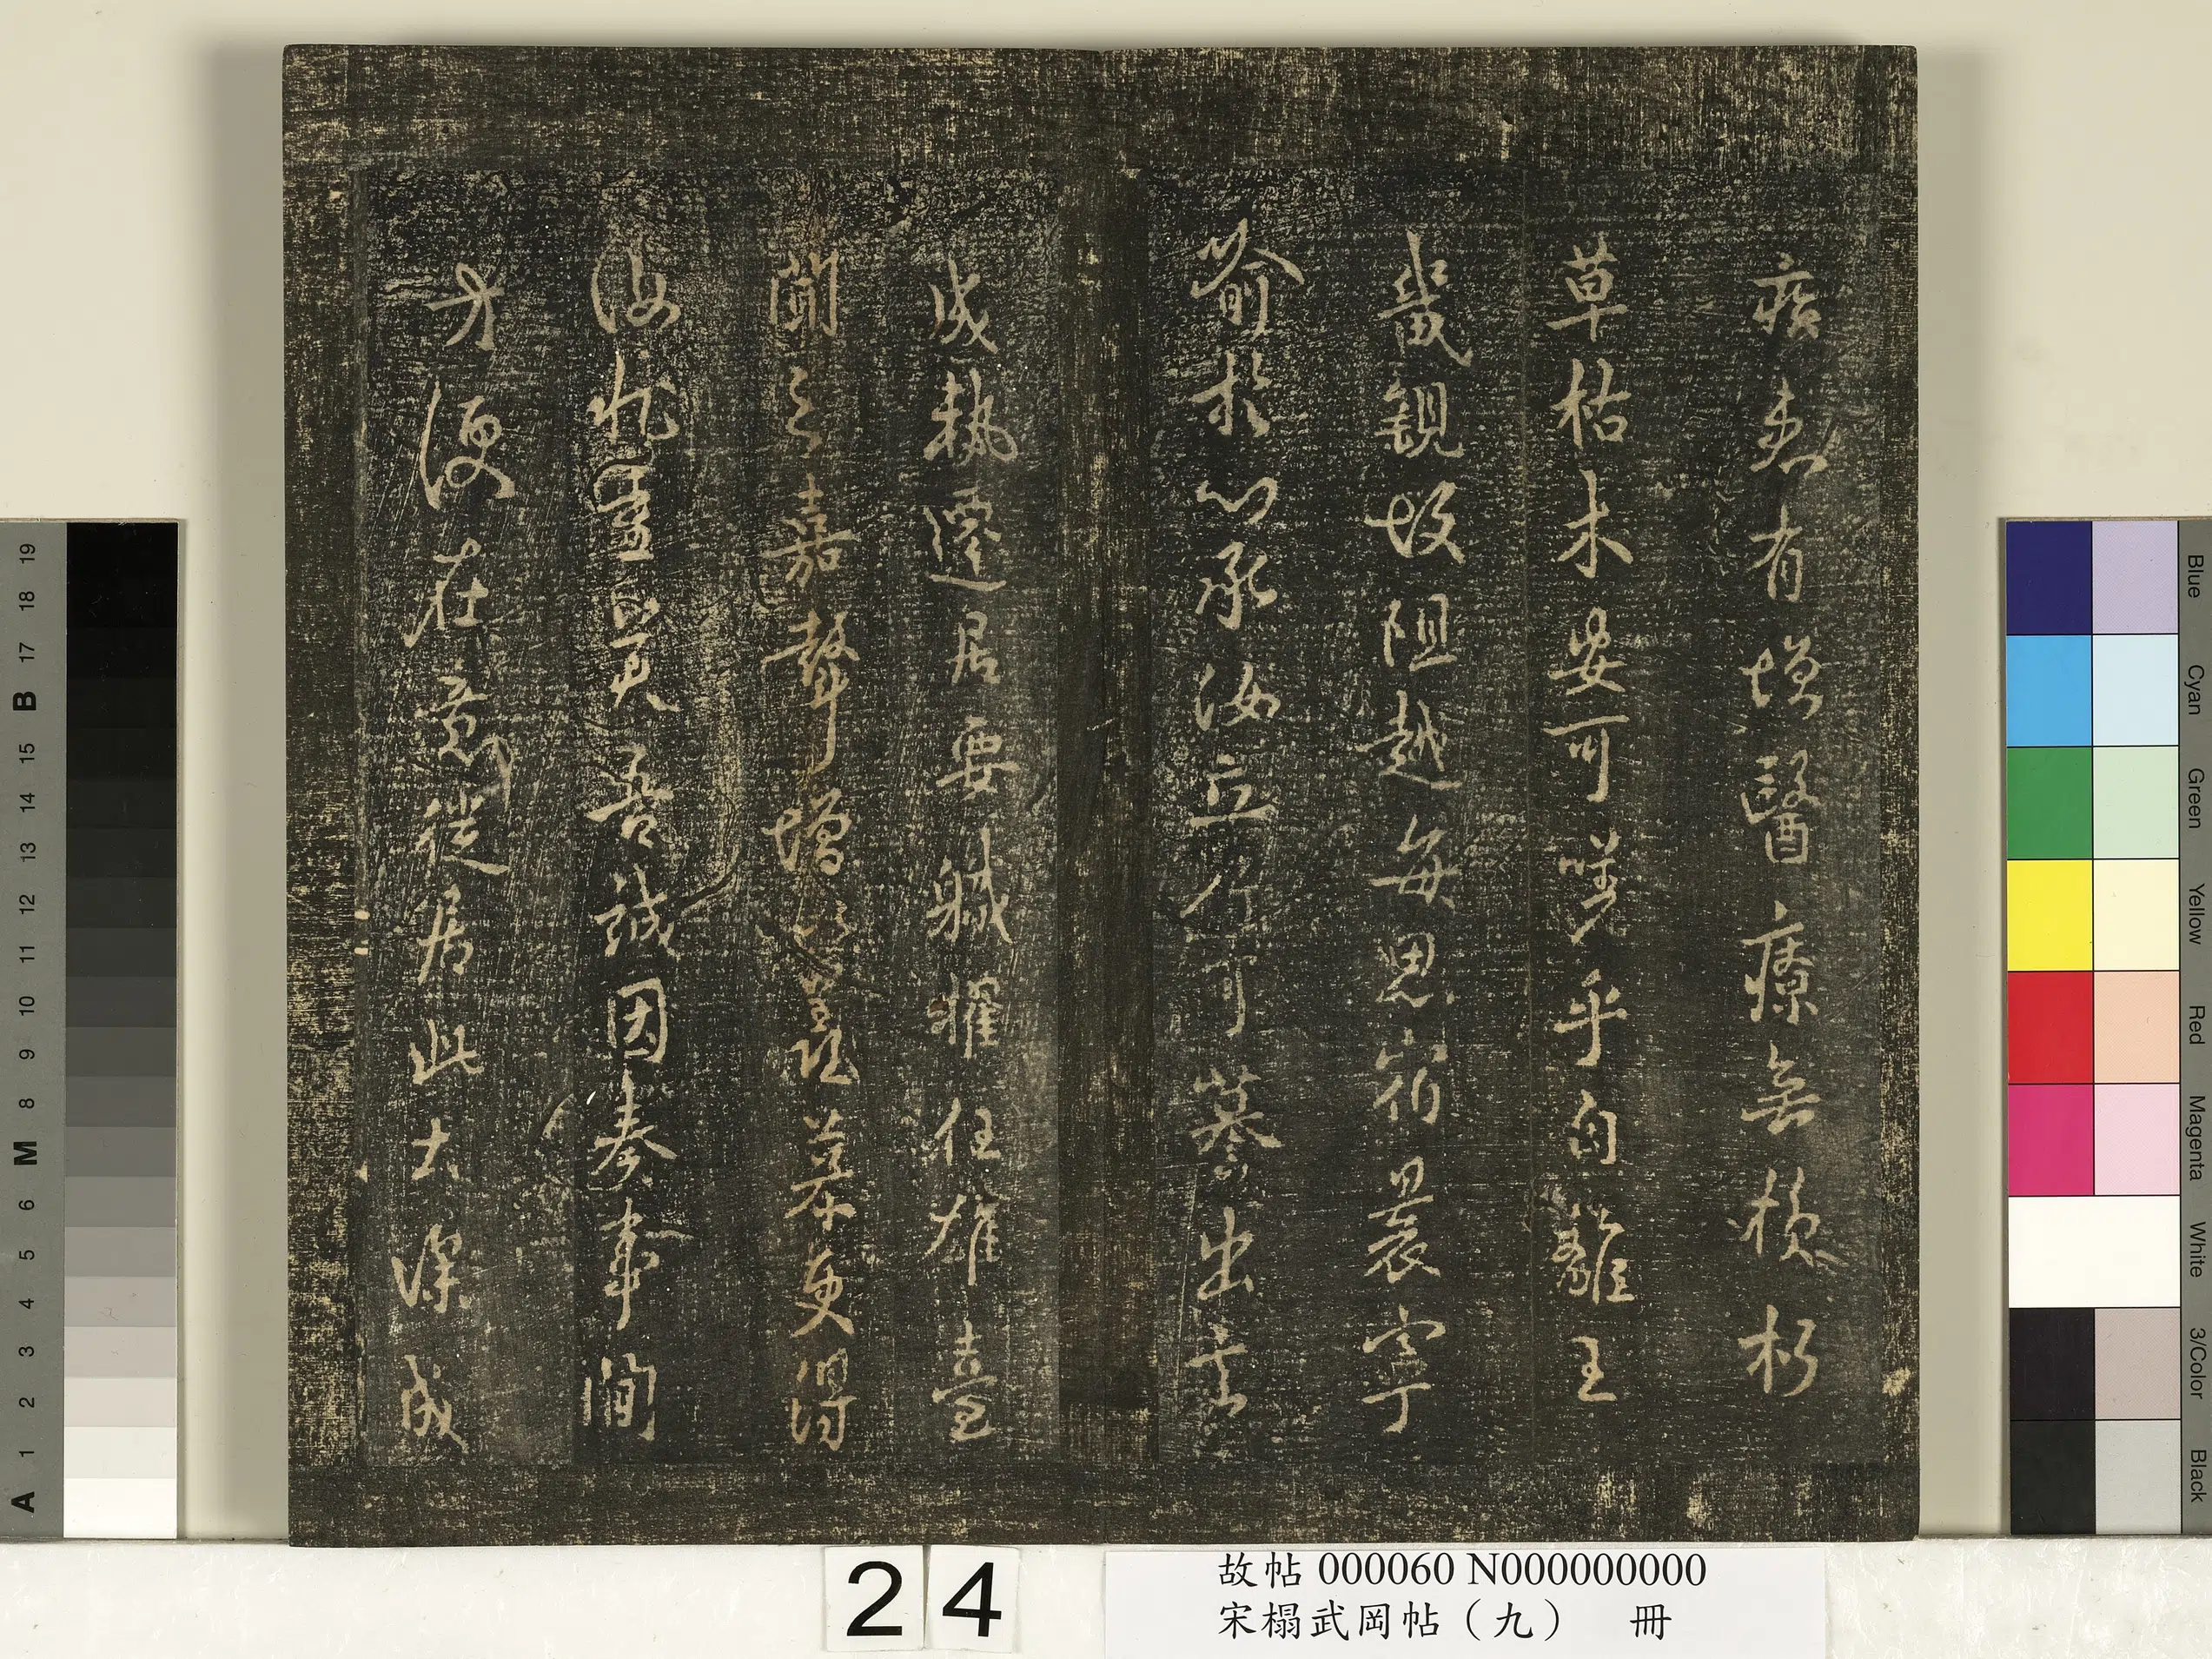 疾患有增醫療無損朽
草枯木安可嗟乎自離王
畿覲故阻越每思宿晨寧
喻於心承汝立行可慕出言
成執遷居要職擢任雄臺
聞之嘉聲增慕更得
汝靈吾誠因奏事間
方便在意從居此土深成
24
故帖 000060 N000000000
宋榻武岡帖（九） 冊
Blue
Cyan
Green
Yellow
Red
Magenta
White
3/Color
Black
A 1 2 3 4 5 6 M 8 9 10 11 12 13 14 15 B 17 18 19